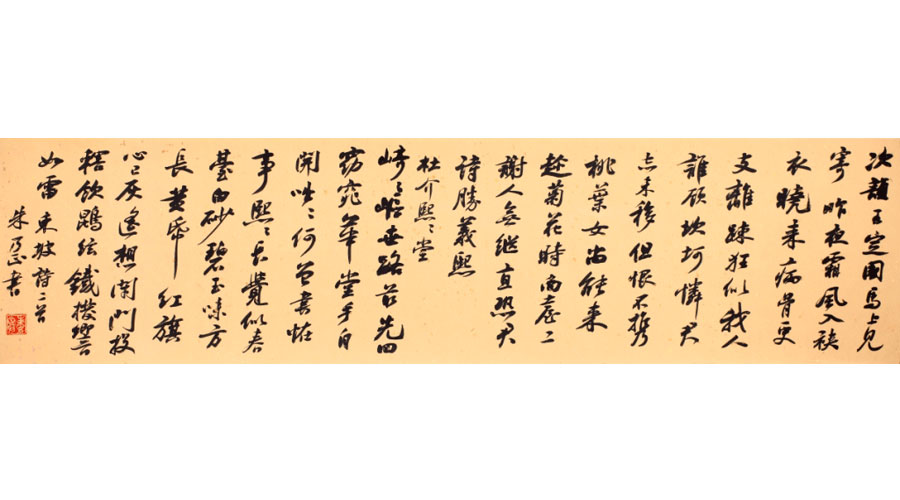 次韻王定國馬上見
寄 昨夜霜風入裌
衣曉来病骨更
支離疎狂似我人
誰顧坎坷憐君
志未移但恨不携
桃葉女尚能来
趁菊花時南臺二
謝人無继直恐君
詩勝義熙
杜介熙〻堂
崎〻嶇世路最先回
窈窕華堂手自
開咄〻何曾書怪
事熙〻長覺似春
臺白砂碧玉味方
長黄紙紅旗
心已灰遥想閉門投
轄飲鵾絃鐵撥響
如雷 東坡詩二首
朱乃正書